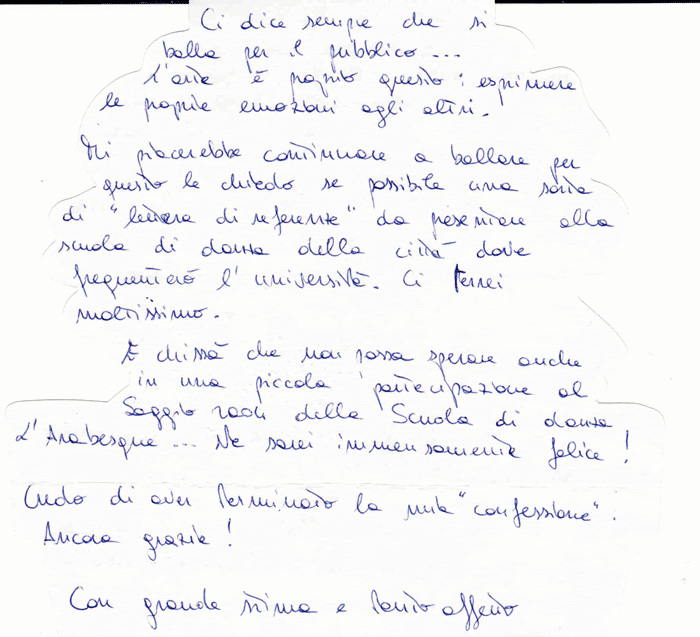 Ci dice sempre che si
balla per il pubblico...
l'arte è proprio questo: esprimere
le proprie emozioni agli altri.
Mi piacerebbe continuare a ballare per
questo le chiedo se possibile una sorta
di "lettera di referenze" da presentare alla
scuola di danza della città dove
frequenterò l'università. Ci terrei
moltissimo.
E chissà che non possa sperare anche
in una piccola partecipazione al
Saggio 2001 della Scuola di danza
L'Arabesque... Ne sarei immensamente felice!
Credo di aver terminato la mia "confessione".
Ancora grazie!
Con grande stima e tanto affetto